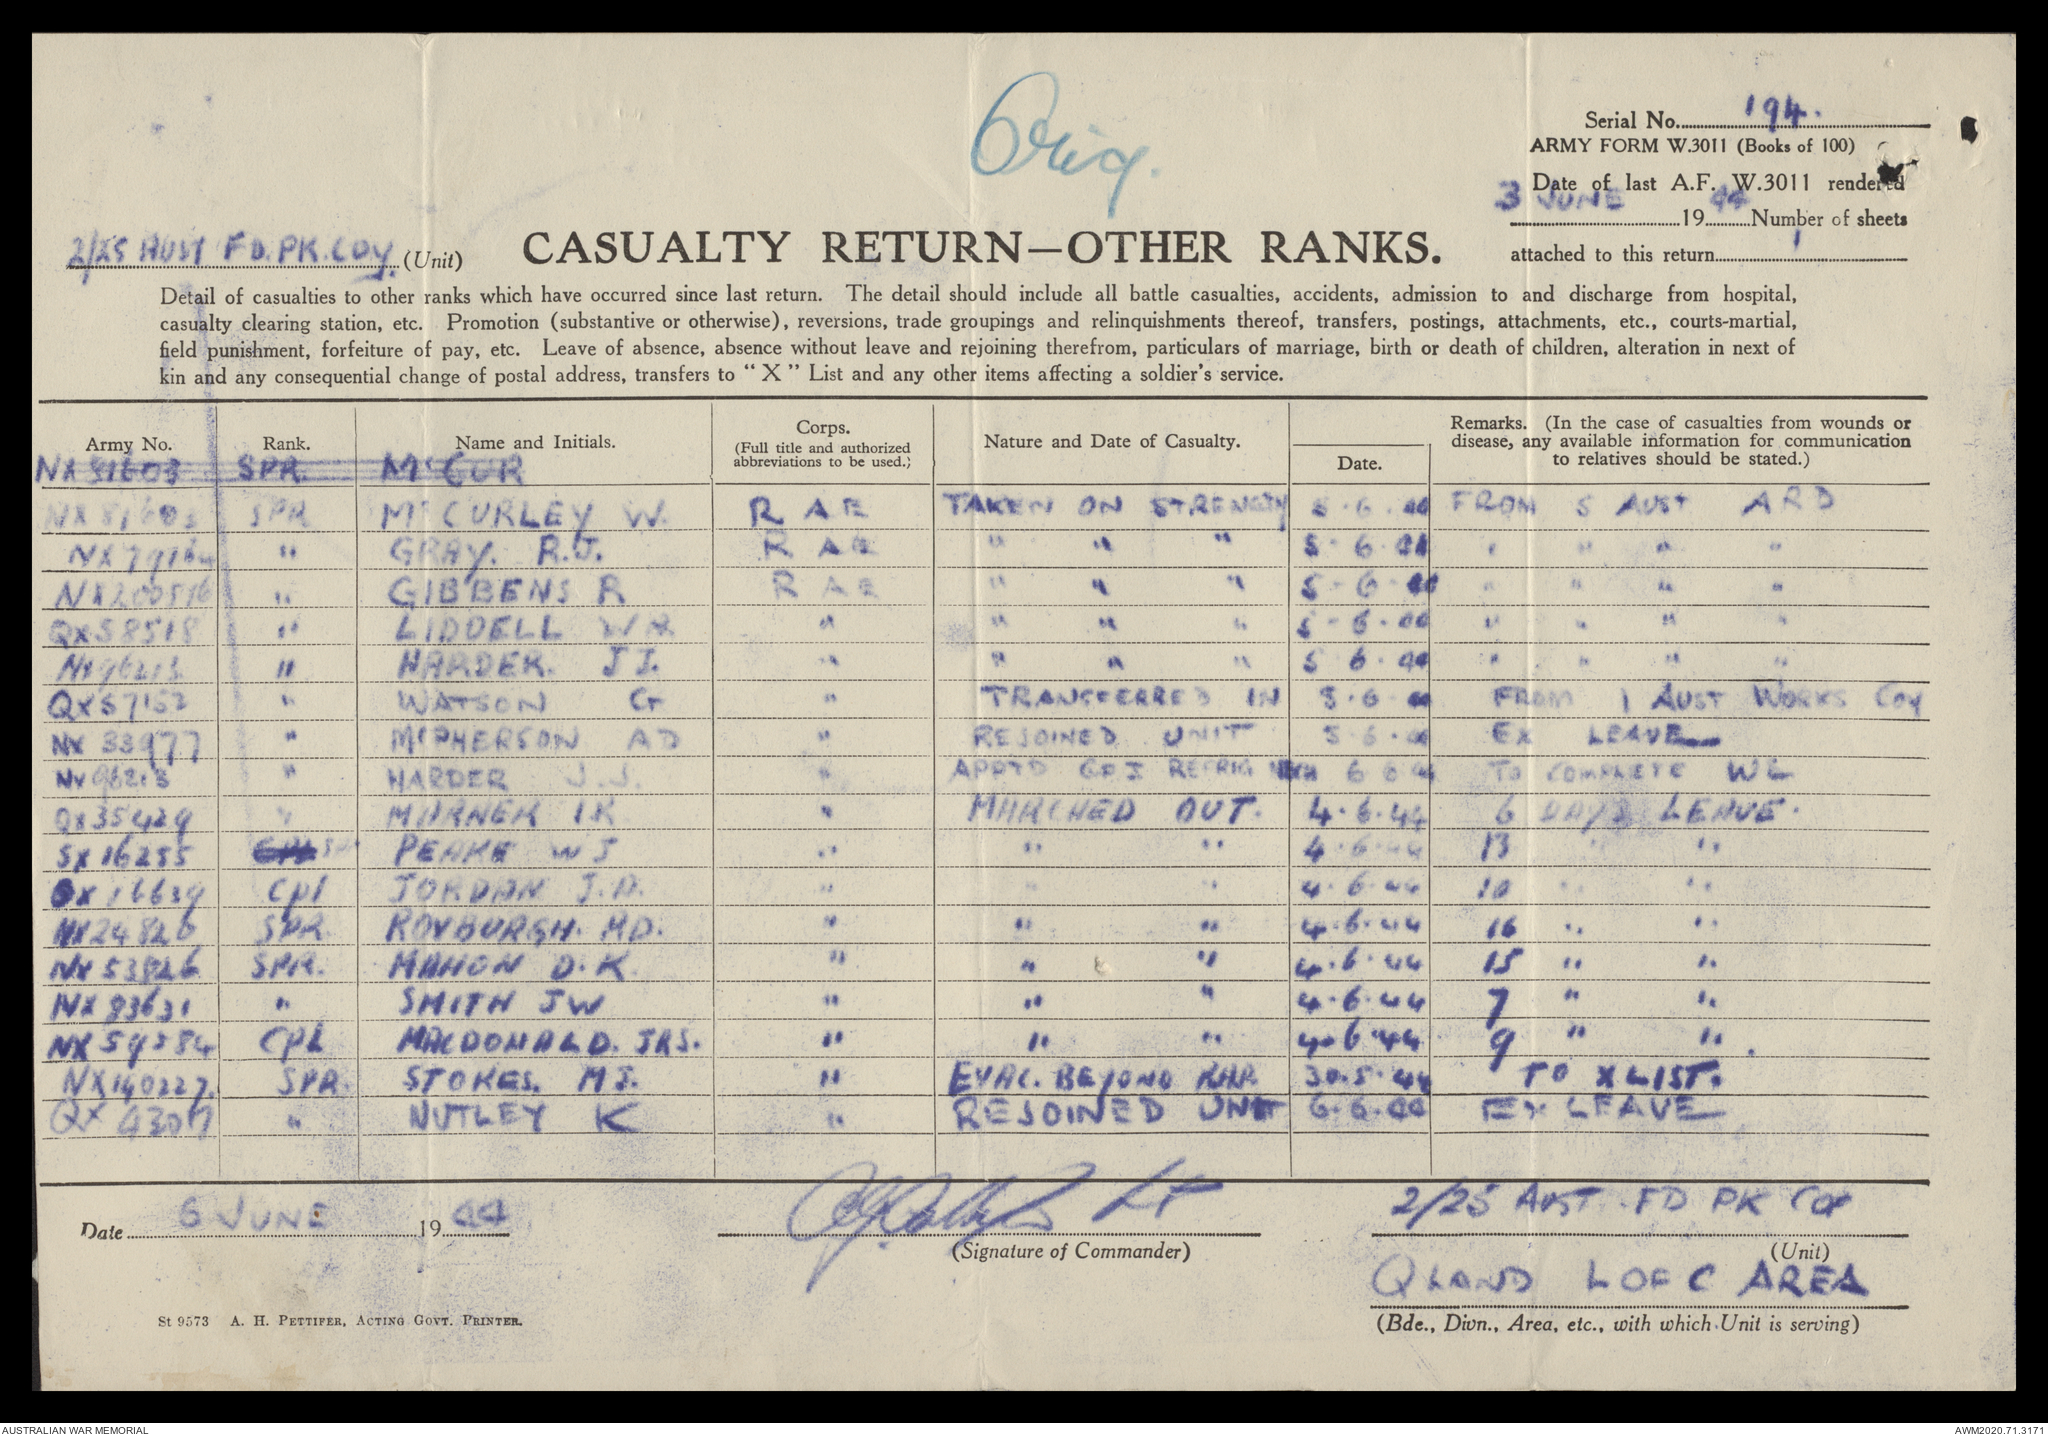 Orig.
Serial No. 194.
ARMY FORM W.3011 (Books of 100)
Date of last A.F. W.3011 rendered
3 JUNE 1944 Number of sheets
attached to this return 1
2/25 AUST FD. PK. COY. (Unit)
CASUALTY RETURN—OTHER RANKS.
Detail of casualties to other ranks which have occurred since last return. The detail should include all battle casualties, accidents, admission to and discharge from hospital,
casualty clearing station, etc. Promotion (substantive or otherwise), reversions, trade groupings and relinquishments thereof, transfers, postings, attachments, etc., courts-martial,
field punishment, forfeiture of pay, etc. Leave of absence, absence without leave and rejoining therefrom, particulars of marriage, birth or death of children, alteration in next of
kin and any consequential change of postal address, transfers to "X" List and any other items affecting a soldier's service.
Army No. Rank. Name and Initials. Corps. (Full title and authorized abbreviations to be used.) Nature and Date of Casualty. Date. Remarks. (In the case of casualties from wounds or disease, any available information for communication to relatives should be stated.)
NX81603 SPR McCUR
NX81603 SPR McCURLEY W. RAE TAKEN ON STRENGTH 5.6.44 FROM 5 AUST ARD
NX79164 " GRAY. R.J. RAE " " " 5.6.44 " " " "
NX200516 " GIBBENS R RAE " " " 5-6-44 " " " "
QX58518 " LIDDELL WR " " " " 5-6-44 " " " "
NX96213 " HARDER. JJ. " " " " 5 6.44 " " " "
QX57152 " WATSON G " TRANSFERRED IN 5.6.44 FROM 1 AUST WORKS COY
NX33977 " McPHERSON AD " REJOINED UNIT 5.6.44 EX LEAVE
NX96213 " HARDER J.J. " APPTD GP I REFRIG 6 6 44 TO COMPLETE WE
QX35429 " MARNEK IK " MARCHED OUT. 4.6.44 6 DAYS LEAVE.
SX16255 SPR PEAKE WJ " " " 4.6.44 13 " "
16639 Cpl JORDAN J.D. " " " 4.6.44 10 " "
NX24826 SPR. ROXBURGH. MD. " " " 4.6.44 16 " "
NX53826 SPR. MAHON D.K. " " " 4.6.44 15 " "
NX83631 " SMITH JW " " " 4.6.44 7 " "
NX59584 CPL MACDONALD. JRS. " " " 4.6.44 9 " "
NX140227. SPR. STOKES. MJ. " EVAC. BEYOND RHP 30.5.44 TO X LIST.
QX4307 " NUTLEY K " REJOINED UNIT 6.6.44 EX LEAVE
Date 6 JUNE 1944
Lt
(Signature of Commander)
2/25 AUST. FD PK COY
(Unit)
QLAND L OF C AREA
(Bde., Divn., Area, etc., with which Unit is serving)
St 9573 A. H. PETTIFER, ACTING GOVT. PRINTER.
AUSTRALIAN WAR MEMORIAL
AWM2020.71.3171